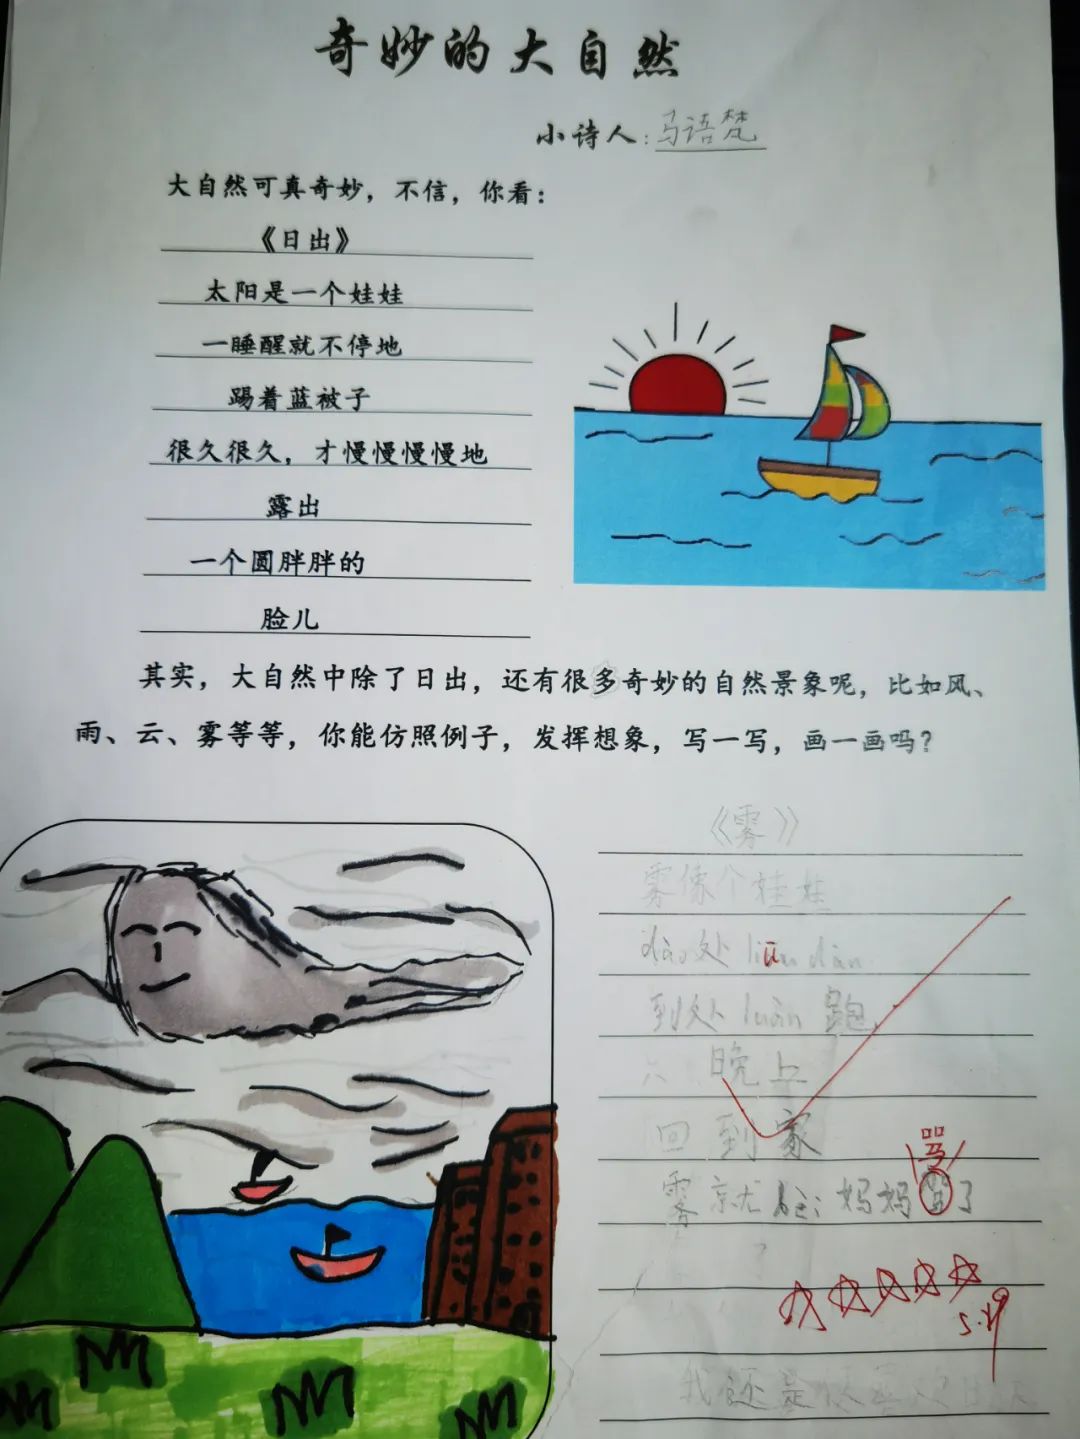 奇妙的大自然
小诗人:马语梵
大自然可真奇妙，不信，你看：
《日出》
太阳是一个娃娃
一睡醒就不停地
踢着蓝被子
很久很久，才慢慢慢慢地
露出
一个圆胖胖的
脸儿
其实，大自然中除了日出，还有很多奇妙的自然景象呢，比如风、
雨、云、雾等等，你能仿照例子，发挥想象，写一写，画一画吗？
《雾》
雾像个娃娃
dào处
到处luàn跑
晚上
回到家
骂
雾就 妈妈 了
5.19
我还是